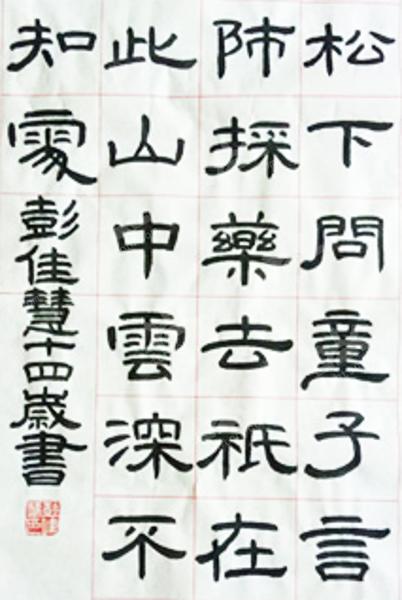 松下問童子言
師採藥去祇在
此山中雲深不
知處彭佳慧十四歲書